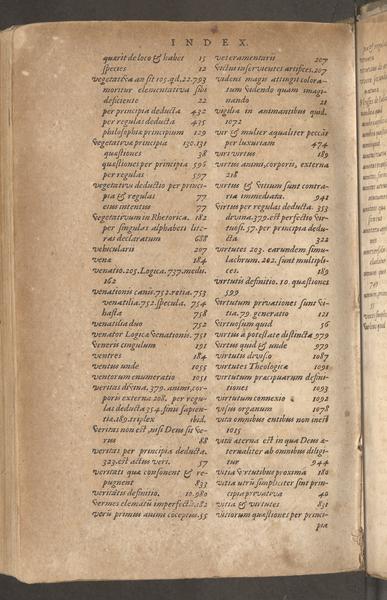 INDEX.
quærit de loco & habet 15
species 12
vegetativa an sit 105. qd. 22.793
moritur elementativa sibi
deficiente 22
per principia deducta 432
per regulas deducta 435
philosophia principium 129
Vegetativa principia 130.131
quæstiones 38
quæstiones per principia 596
per regulas 597
vegetativæ deductio per princi-
pia & regulas 77
eius intentus 77
Vegetativum in Rhetorica. 182
per singulas alphabeti lite-
ras declaratum 688
vehicularij 207
venæ 184
venatio. 205. Logica. 737. medii.
162
venationis canis. 752. retia. 753
venatilia. 752. specula. 754
hasta 758
venatilia duo 752
venator Logicæ venationis. 751
Veneris cingulum 191
ventres 184
ventus unde 1055
ventorum enumeratio 1051
veritas divina. 379. animi, cor-
poris externa 208. per regu-
las deducta 354. sinu sapien-
tia. 189. triplex ibid.
Veritas non est, nisi Deus sit ve-
rus 88
veritas per principia deducta.
323. est actus veri. 57
veritati quæ consonent & re-
pugnent 833
veritatis definitio. 10.980
vermes elematũ imperfecta. 182
verũ primus animi cõceptus. 55
veteramentarii 207
Victui inservientes artifices. 207
videns magis attingit colora-
tum videndo quam imagi-
nando 21
vigilia in animantibus quid.
1072
vir & mulier æqualiter peccãt
per luxuriam 474
viri virtus 189
virtus animi, corporis, externa
218
virtus & vitium sunt contra-
ria immediata. 941
Virtus per regulas deducta. 353
divina. 379. est perfectio vir-
tuosi. 57. per principia dedu-
cta 322
virtutes 203. earundem simu-
lachrum. 202. sunt multipli-
ces. 189
virtutis definitio. 10. quæstiones
599
Virtutum privationes sunt vi-
tia. 79. generatio 121
Virtuosum quid 56
virtus à potestate distincta 979
Virtus quid & unde 979
virtutis divisio 1087
virtutes Theologicæ 1091
virtutum præcipuarum defini-
tiones 1093
virtutum connexio 1092
visus organum 1078
vita omnibus entibus non inest
1015
vitã æterna est in qua Deus æ-
ternaliter ab omnibus diligi-
tur 944
vitia virtutibus proxima 180
vitia utrũ simpliciter sint prin-
cipia privativa 40
vitia & virtutes 831
vitiorum quæstiones per princi-
pia